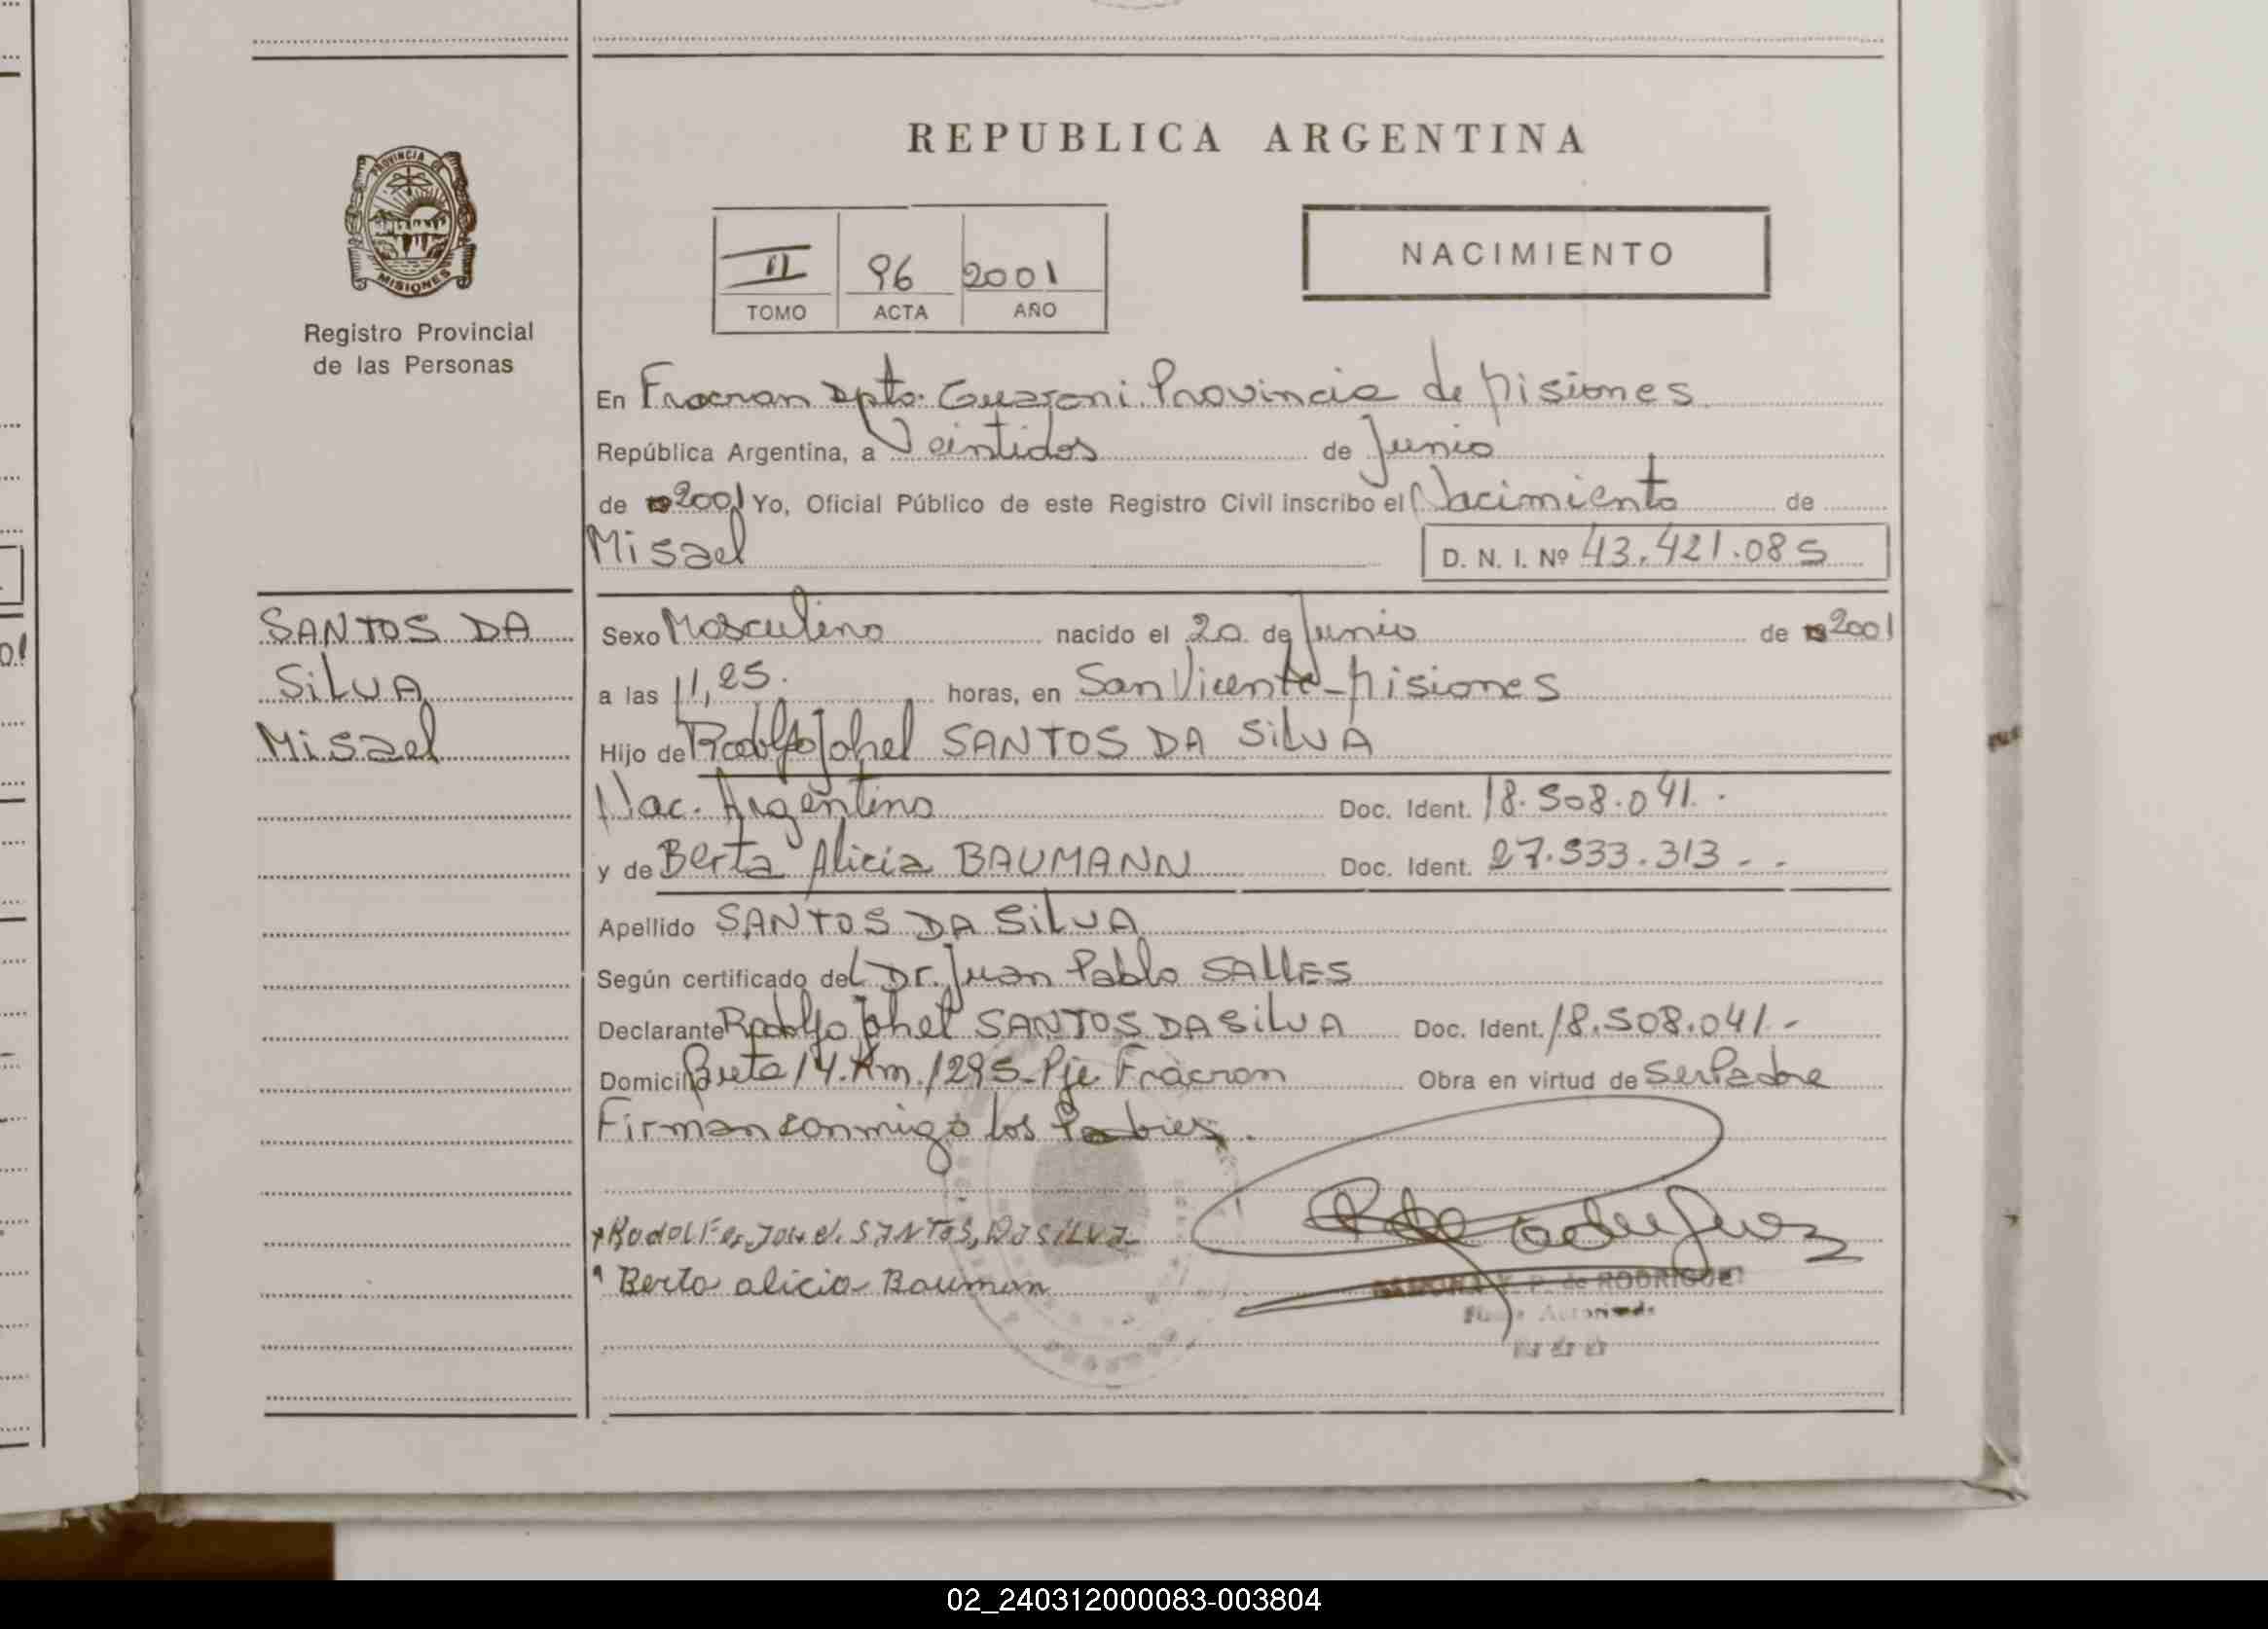 REPUBLICA ARGENTINA
PROVINCIA DE MISIONES
Registro Provincial
de las Personas
II 96 2001
TOMO ACTA AÑO
NACIMIENTO
En Fracran Dpto. Guarani. Provincia de Misiones
República Argentina, a Veintidos de Junio
de 2001 Yo, Oficial Público de este Registro Civil inscribo el Nacimiento de
Misael D. N. I. Nº 43.421.085
SANTOS DA
SILVA
Misael
Sexo Masculino nacido el 20 de Junio de 2001
a las 11,25. horas, en San Vicente - Misiones
Hijo de Rodolfo Johel SANTOS DA SILVA
Nac. Argentino Doc. Ident. 18.508.041.
y de Berta Alicia BAUMANN Doc. Ident. 27.533.313 - -
Apellido SANTOS DA SILVA
Según certificado del Dr. Juan Pablo SALLES
Declarante Rodolfo Johel SANTOS DA SILVA Doc. Ident. 18.508.041.-
Domicilio Ruta 14. Km. 1295 - Pje. Fracran Obra en virtud de Ser Padre
Firman conmigo los Padres.
Rodolfo Johel SANTOS DA SILVA
Berta alicia Bauman
P. de RODRIGUEZ
02_240312000083-003804